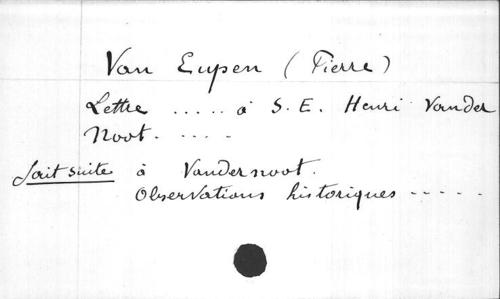 Van Eupen (Pierre)
Lettre ..... à S. E. Henri Vander
Noot. ....
fait suite à Vandernoot.
Observations historiques .....